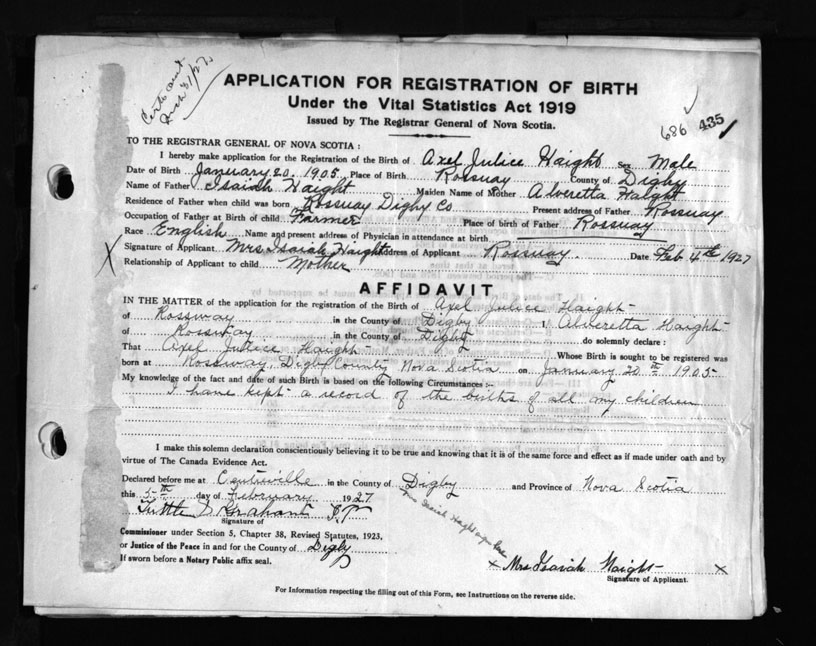 Cert. sent
APPLICATION FOR REGISTRATION OF BIRTH
Under the Vital Statistics Act 1919
Issued by The Registrar General of Nova Scotia.
686 435
TO THE REGISTRAR GENERAL OF NOVA SCOTIA :
I hereby make application for the Registration of the Birth of Axel Julice Haight Sex Male
Date of Birth January 20, 1905 Place of Birth Rossway County of Digby
Name of Father Isaiah Haight Maiden Name of Mother Alveretta Haight
Residence of Father when child was born Rossway Digby Co Present address of Father Rossway
Occupation of Father at Birth of child Farmer Place of birth of Father Rossway
Race English Name and present address of Physician in attendance at birth
Signature of Applicant Mrs Isaiah Haight Address of Applicant Rossway. Date Feb 4th 1927
Relationship of Applicant to child Mother
AFFIDAVIT
IN THE MATTER of the application for the registration of the Birth of Axel Julice Haight
of Rossway in the County of Digby I, Alveretta Haight
of Rossway in the County of Digby do solemnly declare :
That Axel Julice Haight Whose Birth is sought to be registered was
born at Rossway, Digby County Nova Scotia on January 20th 1905
My knowledge of the fact and date of such Birth is based on the following Circumstances :-
I have kept a record of the births of all my children
I make this solemn declaration conscientiously believing it to be true and knowing that it is of the same force and effect as if made under oath and by
virtue of The Canada Evidence Act.
Declared before me at Centreville in the County of Digby and Province of Nova Scotia
this 5th day of February 1927
Tuttle S Graham J P
Mrs Isaiah Haight sign here
Signature of
Commissioner under Section 5, Chapter 38, Revised Statutes, 1923,
or Justice of the Peace in and for the County of Digby
If sworn before a Notary Public affix seal.
x Mrs Isaiah Haight x
Signature of Applicant.
For Information respecting the filling out of this Form, see Instructions on the reverse side.